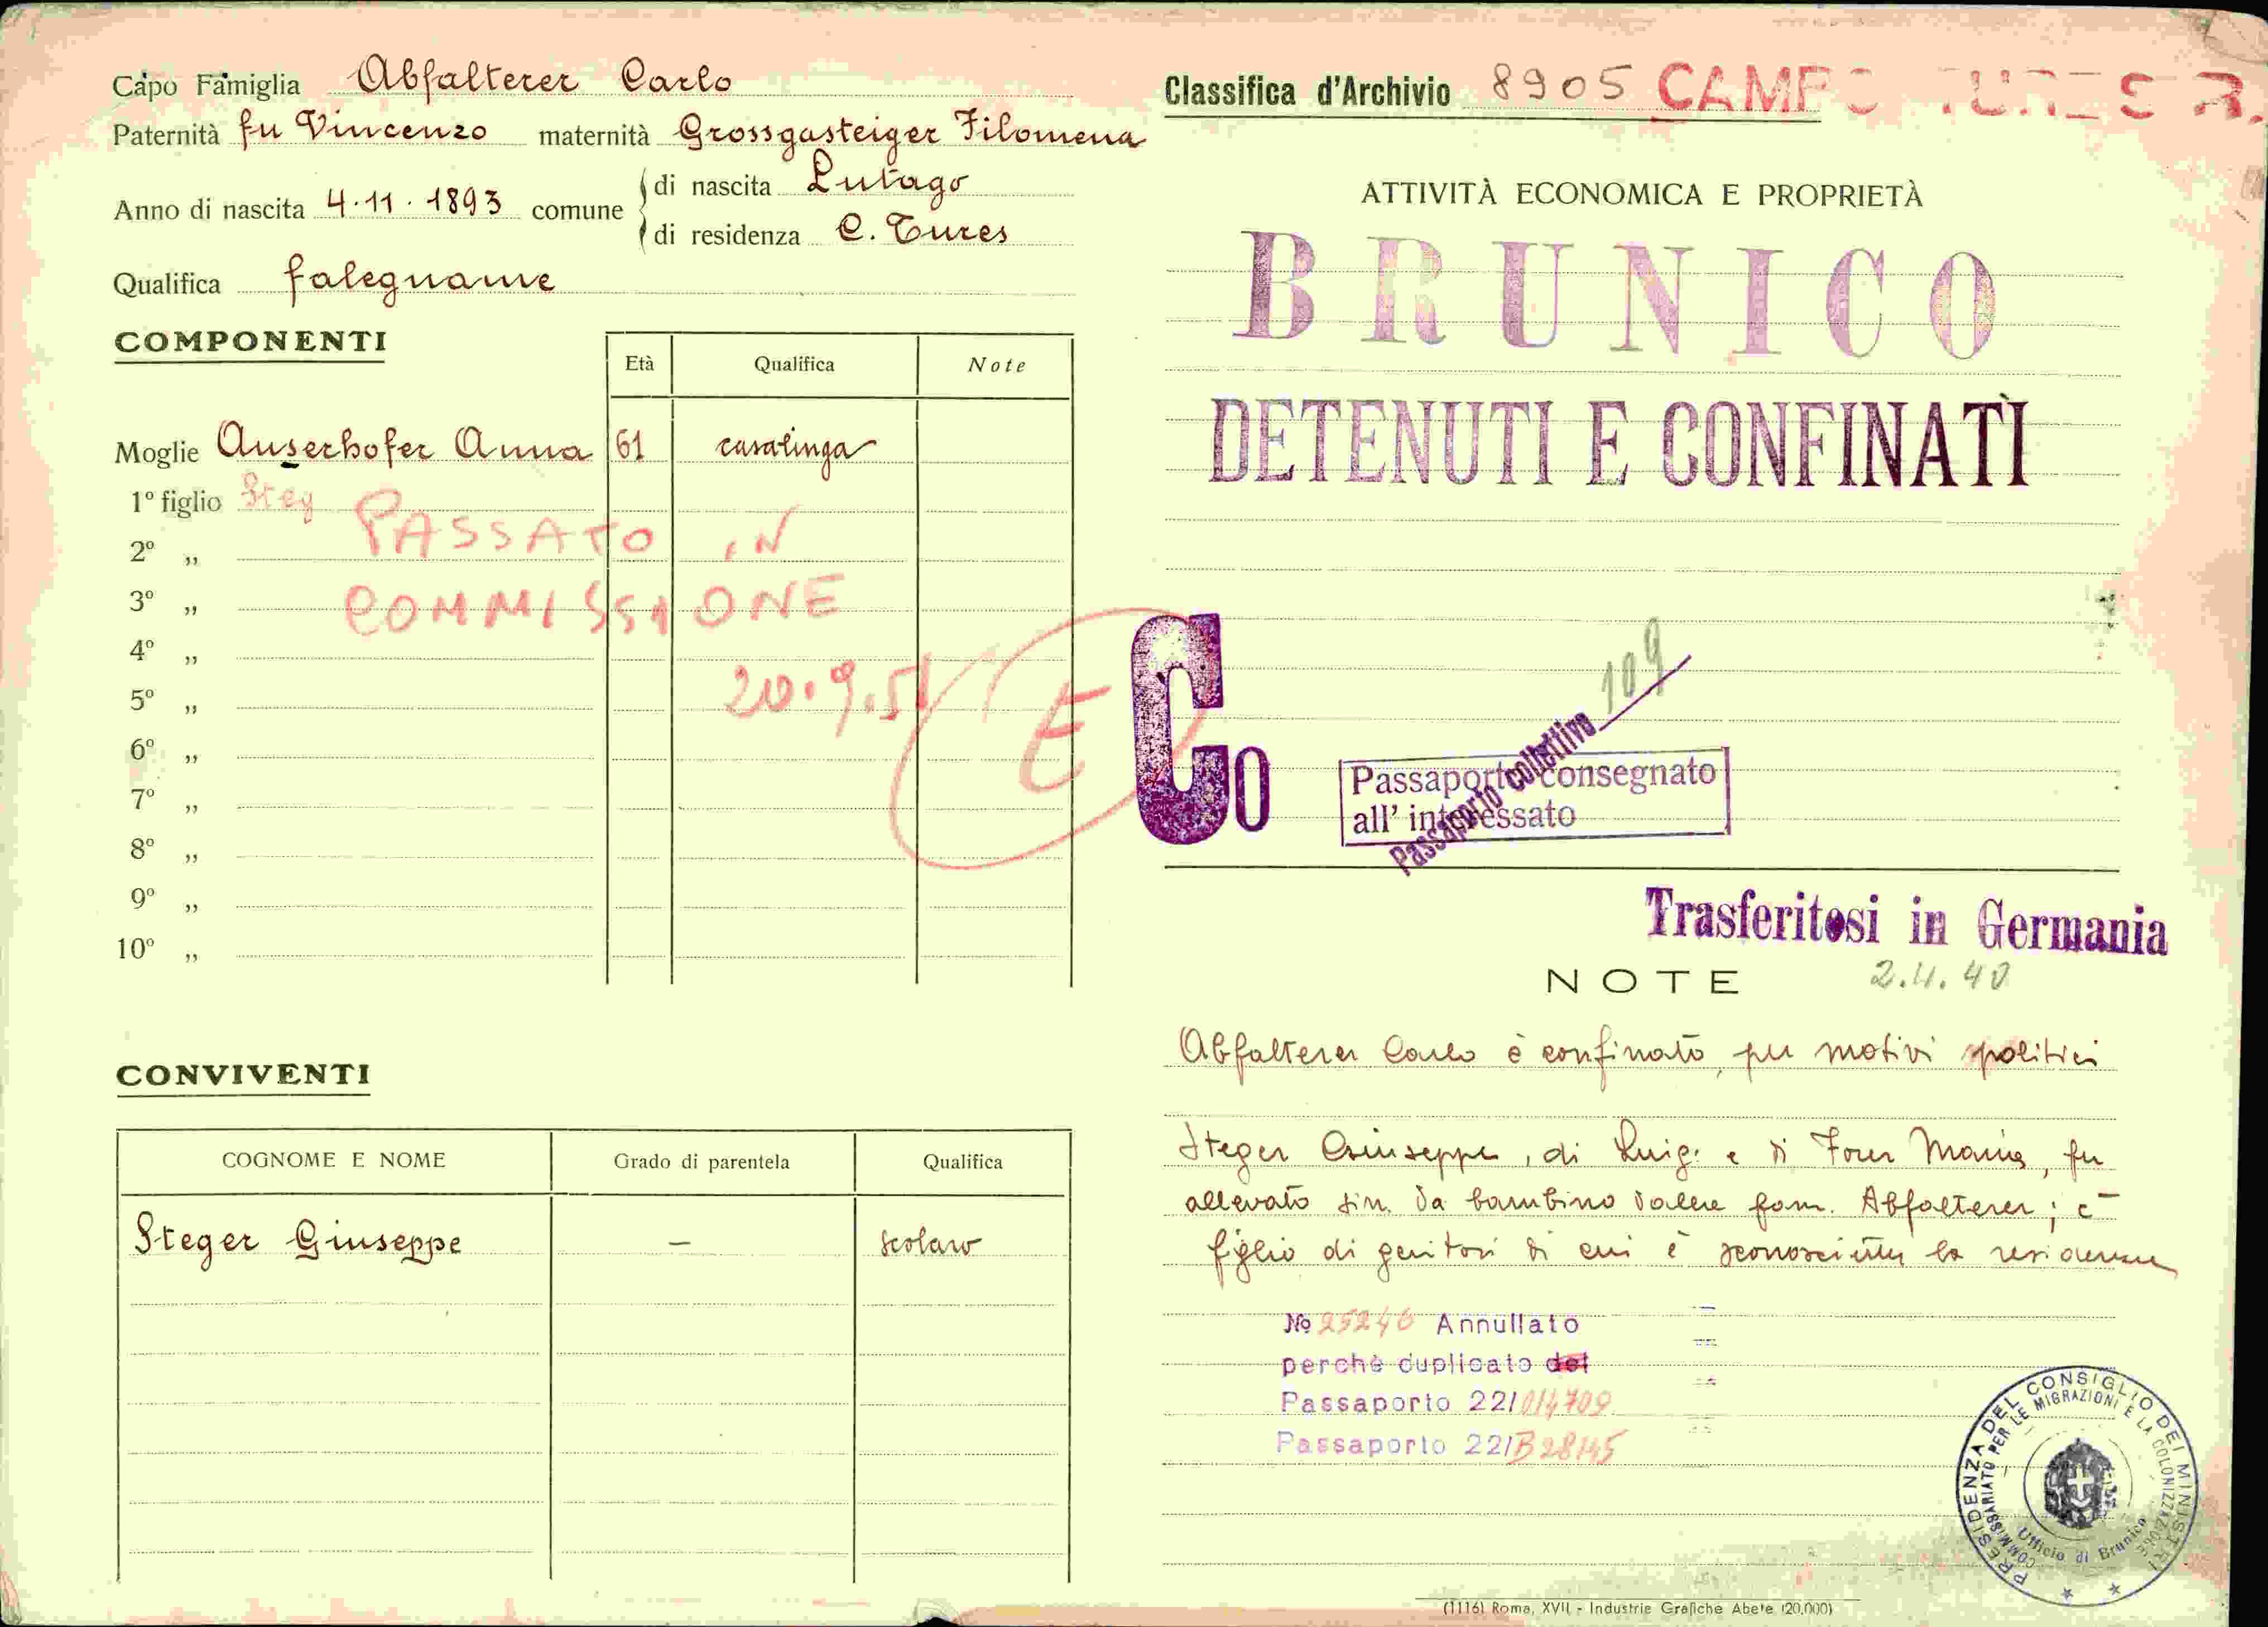 Capo Famiglia Abfalterer Carlo
Paternità fu Vincenzo maternità Grossgasteiger Filomena
Anno di nascita 4.11.1893 comune
di nascita Lutago
di residenza C. Tures
Qualifica falegname
COMPONENTI
Età Qualifica Note
Moglie Auserhofer Anna 61 casalinga
1º figlio Steg
2º „
3º „
4º „
5º „
6º „
7º „
8º „
9º „
10º „
PASSATO IN
COMMISSIONE
20.9.51
E
CONVIVENTI
COGNOME E NOME Grado di parentela Qualifica
Steger Giuseppe — scolaro
Classifica d'Archivio 8905 CAMPO TURES
ATTIVITÀ ECONOMICA E PROPRIETÀ
BRUNICO
DETENUTI E CONFINATI
Co
Passaporto collettivo 109
Passaporto consegnato
all' interessato
Trasferitosi in Germania
NOTE 2.4.40
Abfalterer Carlo è confinato per motivi politici
Steger Giuseppe, di Luigi e di Forer Maria, fu
allevato sin da bambino dalla fam. Abfalterer; è
figlio di genitori di cui è sconosciuta la residenza
No 25246 Annullato
perchè duplicato del
Passaporto 22/014709
Passaporto 22/B28145
PRESIDENZA DEL CONSIGLIO DEI MINISTRI
COMMISSARIATO PER LE MIGRAZIONI E LA COLONIZZAZIONE
Ufficio di Brunico
(1116) Roma, XVII - Industrie Grafiche Abete (20.000)